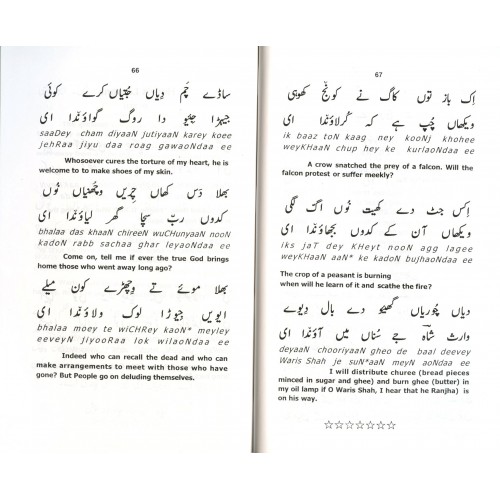 66
ساڈے چم دیاں جتیاں کرے کوئی
جیہڑا جیو دا روگ گواؤندا ای
saaDey cham diyaaN jutiyaaN karey koee
jehRaa jiyu daa roag gawaoNdaa ee
Whosoever cures the torture of my heart, he is
welcome to to make shoes of my skin.
بھلا دس کھاں چریں وچھنیاں نوں
کدوں رب سچا گھر لیاؤندا ای
bhalaa das khaan chireeN wuCHunyaaN nooN
kadoN rabb sachaa ghar leyaoNdaa ee
Come on, tell me if ever the true God brings
home those who went away long ago?
بھلا موئے تے وچھڑے کون میلے
ایویں جیوڑا لوک ولاؤندا ای
bhalaa moey te wiCHRey kaoN* meyley
eeveyN jiyooRaa lok wilaoNdaa ee
Indeed who can recall the dead and who can
make arrangements to meet with those who have
gone? But People go on deluding themselves.
67
اک باز توں کاگ نے کونج کھوہی
ویکھاں چپ ہے کہ کرلاؤندا ای
ik baaz toN kaag ney kooNj khohee
weyKHaaN chup hey ke kurlaoNdaa ee
A crow snatched the prey of a falcon. Will the
falcon protest or suffer meekly?
اکس جٹ دے کھیت نوں اگ لگی
ویکھاں آن کے کدوں بجھاؤندا ای
iks jaT dey KHeyt nooN agg lagee
weyKHaaN aaN* ke kadoN bujhaoNdaa ee
The crop of a peasant is burning
when will he learn of it and scathe the fire?
دیاں چوریاں گھیو دے بال دیوے
وارث شاہ جے سناں میں آؤندا ای
deyaaN chooriyaaN gheo de baal deevey
Waris Shah je suN*aaN meyN aoNdaa ee
I will distribute churee (bread pieces
minced in sugar and ghee) and burn ghee (butter) in
my oil lamp if O Waris Shah, I hear that he Ranjha) is
on his way.
☆☆☆☆☆☆☆